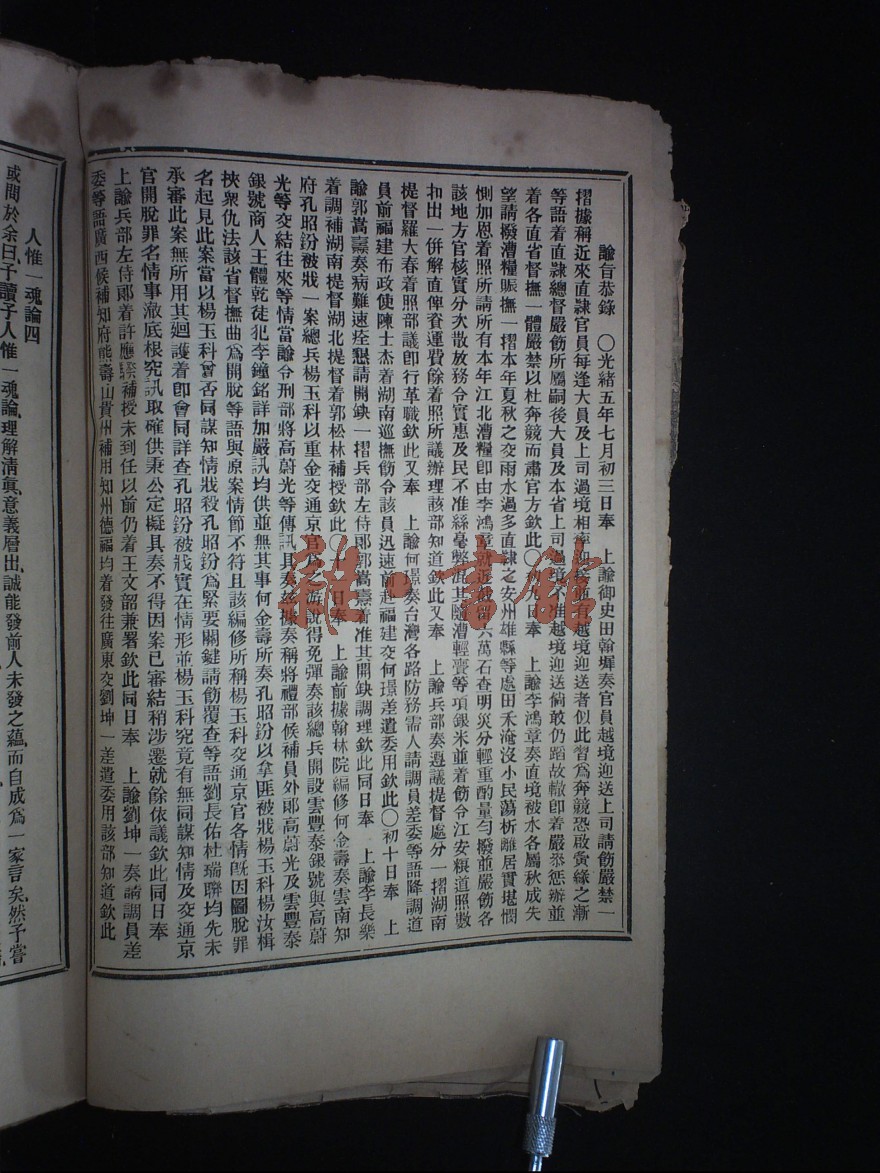 諭旨恭錄　〇光緒五年七月初三日奉　上諭御史田翰墀奏官員越境迎送上司請飭嚴禁一
摺據稱近來直隸官員每逢大員及上司過境相率迎接並有越境迎送者似此習爲奔競恐啟夤緣之漸
等語着直隸總督嚴飭所屬嗣後大員及本省上司過境不准越境迎送倘敢仍蹈故轍卽着嚴叅懲辦並
着各直省督撫一體嚴禁以杜奔競而肅官方欽此〇 日奉　上諭李鴻章奏直境被水各屬秋成失
望請撥漕糧賑撫一摺本年夏秋之交雨水過多直隸之安州雄縣等處田禾淹沒小民蕩析離居實堪憫
惻加恩着照所請所有本年江北漕糧卽由李鴻章就近截留六萬石查明災分輕重酌量勻撥並嚴飭各
該地方官核實分次散放務令實惠及民不准絲毫弊混其隨漕輕賫等項銀米並着飭令江安粮道照數
扣出一併解直俾資運費餘着照所議辦理該部知道欽此又奉　上諭兵部奏遵議提督處分一摺湖南
提督羅大春着照部議卽行革職欽此又奉　上諭何璟奏台灣各路防務需人請調員差委等語降調道
員前福建布政使陳士杰着湖南巡撫飭令該員迅速前赴福建交何璟差遣委用欽此〇初十日奉　上
諭郭嵩燾奏病難速痊懇請開缺一摺兵部左侍郎郭嵩燾着准其開缺調理欽此同日奉　上諭李長樂
着調補湖南提督湖北提督着郭松林補授欽此〇十 日奉　上諭前據翰林院編修何金壽奏雲南知
府孔昭鈖被戕一案總兵楊玉科以重金交通京官爲之游說得免彈奏該總兵開設雲豐泰銀號與高蔚
光等交結往來等情當諭令刑部將高蔚光等傳訊具奏茲據奏稱將禮部候補員外郎高蔚光及雲豐泰
銀號商人王體乾徒犯李鐘銘詳加嚴訊均供並無其事何金壽所奏孔昭鈖以拿匪被戕楊玉科楊汝楫
挾衆仇法該省督撫曲爲開脫等語與原案情節不符且該編修所稱楊玉科交通京官各情旣因圖脫罪
名起見此案當以楊玉科曾否同謀知情戕殺孔昭鈖爲緊要關鍵請飭覆查等語劉長佑杜瑞聯均先未
承審此案無所用其迴護着卽會同詳查孔昭鈖被戕實在情形並楊玉科究竟有無同謀知情及交通京
官開脫罪名情事澈底根究訊取確供秉公定擬具奏不得因案已審結稍涉遷就餘依議欽此同日奉
上諭兵部左侍郎着許應騤補授未到任以前仍着王文韶兼署欽此同日奉　上諭劉坤一奏請調員差
委等語廣西候補知府熊壽山貴州補用知州德福均着發往廣東交劉坤一差遣委用該部知道欽此
人惟一魂論四
或問於余曰子讀子人惟一魂論理解清眞意義層出誠能發前人未發之蘊而自成爲一家言矣然予嘗
雒·書館